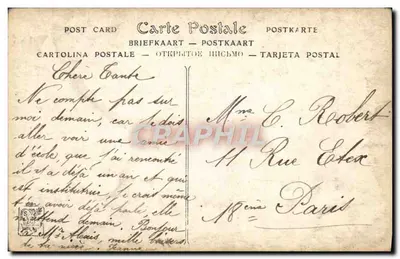 POST CARD Carte Postale POSTKARTE
BRIEFKAART — POSTKAART
CARTOLINA POSTALE — ОТКРЫТОЕ ПИСЬМО — TARJETA POSTAL
Chère Tante
Ne compte pas sur
moi demain, car je dois
aller voir une amie
d'école, que j'ai rencontré
il y a déjà un an et qui
est institutrice, je crois même
avoir déjà parlé, elle
m'attend demain. Bonjour
à Mr Alais, mille baisers
de ta nièce
Mme C. Robert
11 Rue Etex
18ème Paris
CARPHIL